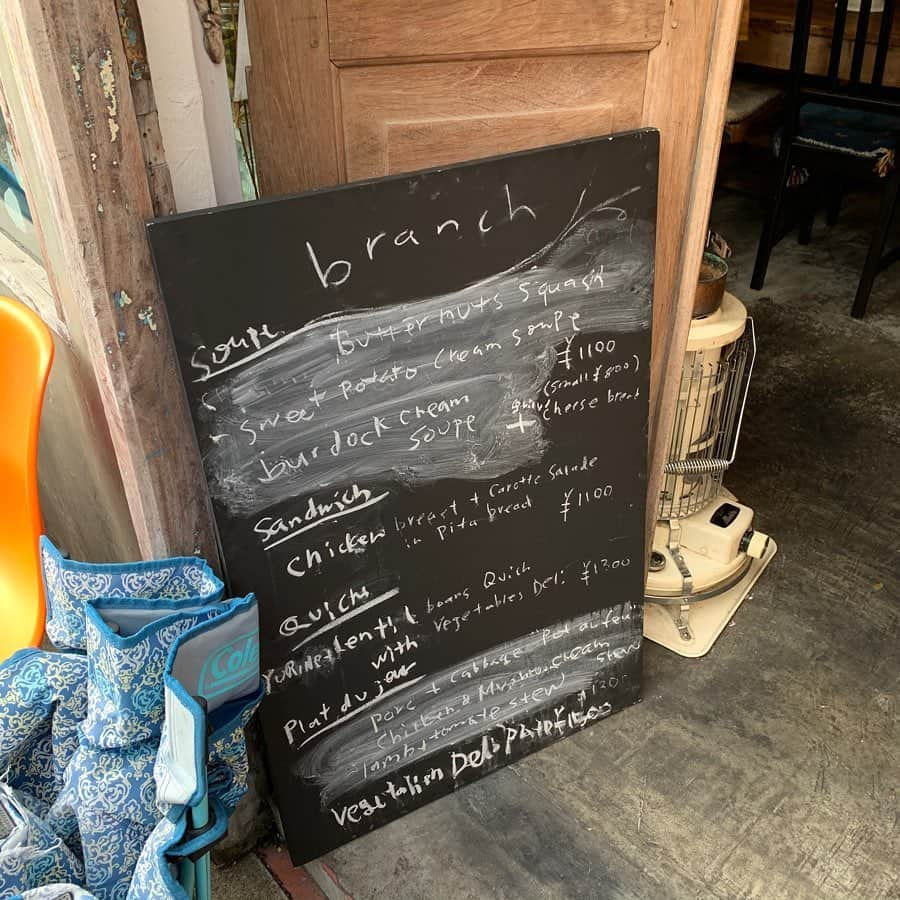 branch
Soupe
butter nuts squash
sweet potato cream soupe
¥1100
(small ¥800)
burdock cream
soupe + cheese bread
Sandwich
chicken breast + carotte salade
in Pita bread ¥1100
Quichs
YURINE + lentil beans Quich
with vegetables Deli ¥1300
Plat du jour
porc + cabbage "Pot au feu"
chicken & Mushroom cream stew
lamb + tomate stew ¥1300
vegetalien Deli Plato ¥1500
Cole